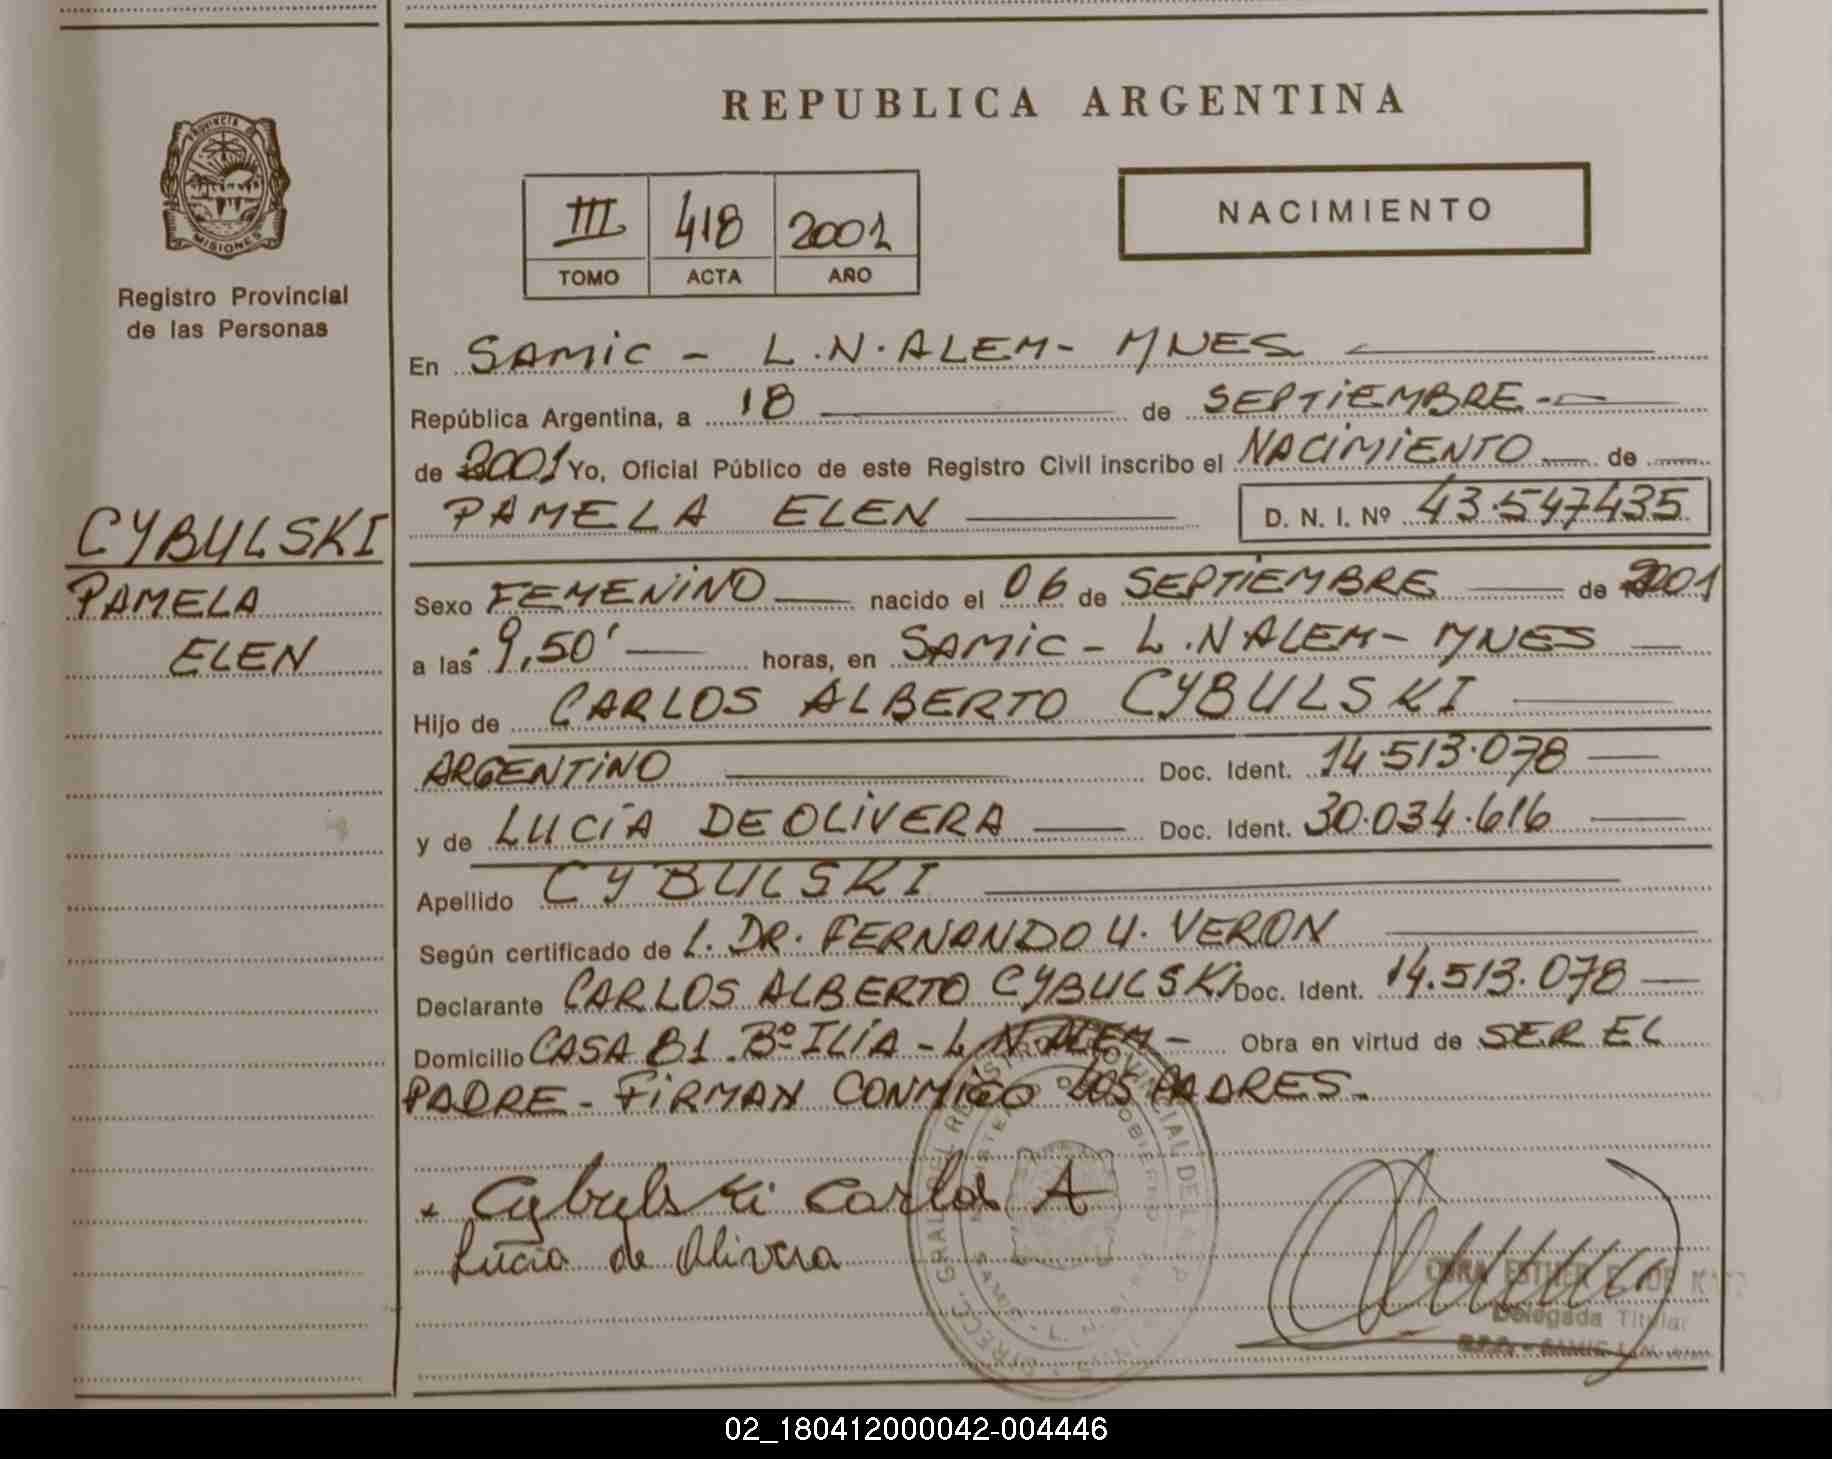 REPUBLICA ARGENTINA
PROVINCIA DE
MISIONES
Registro Provincial
de las Personas
III 418 2001
TOMO ACTA AÑO
NACIMIENTO
En SAMIC - L.N.ALEM- MNES
República Argentina, a 18 de SEPTIEMBRE-
de 2001 Yo, Oficial Público de este Registro Civil inscribo el NACIMIENTO de
PAMELA ELEN D. N. I. Nº 43.547435
CYBULSKI
PAMELA
ELEN
Sexo FEMENINO nacido el 06 de SEPTIEMBRE de 2001
a las 9,50' horas, en SAMIC - L.N.ALEM- MNES
Hijo de CARLOS ALBERTO CYBULSKI
ARGENTINO Doc. Ident. 14.513.078
y de LUCÍA DEOLIVERA Doc. Ident. 30.034.616
Apellido CYBULSKI
Según certificado de L. DR. FERNANDO U. VERON
Declarante CARLOS ALBERTO CYBULSKI Doc. Ident. 14.513.078
Domicilio CASA 81. Bº ILIA - L.N.ALEM- Obra en virtud de SER EL
PADRE - FIRMAN CONMIGO LOS PADRES.
Cybulski Carlos A
Lucia de Olivera
ESTHER
Delegada Titular
02_180412000042-004446